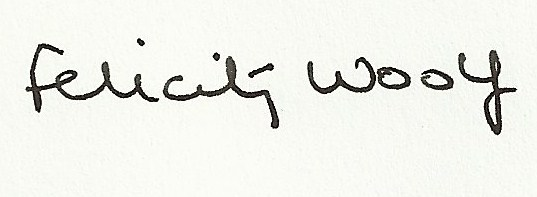 Felicity Woolf